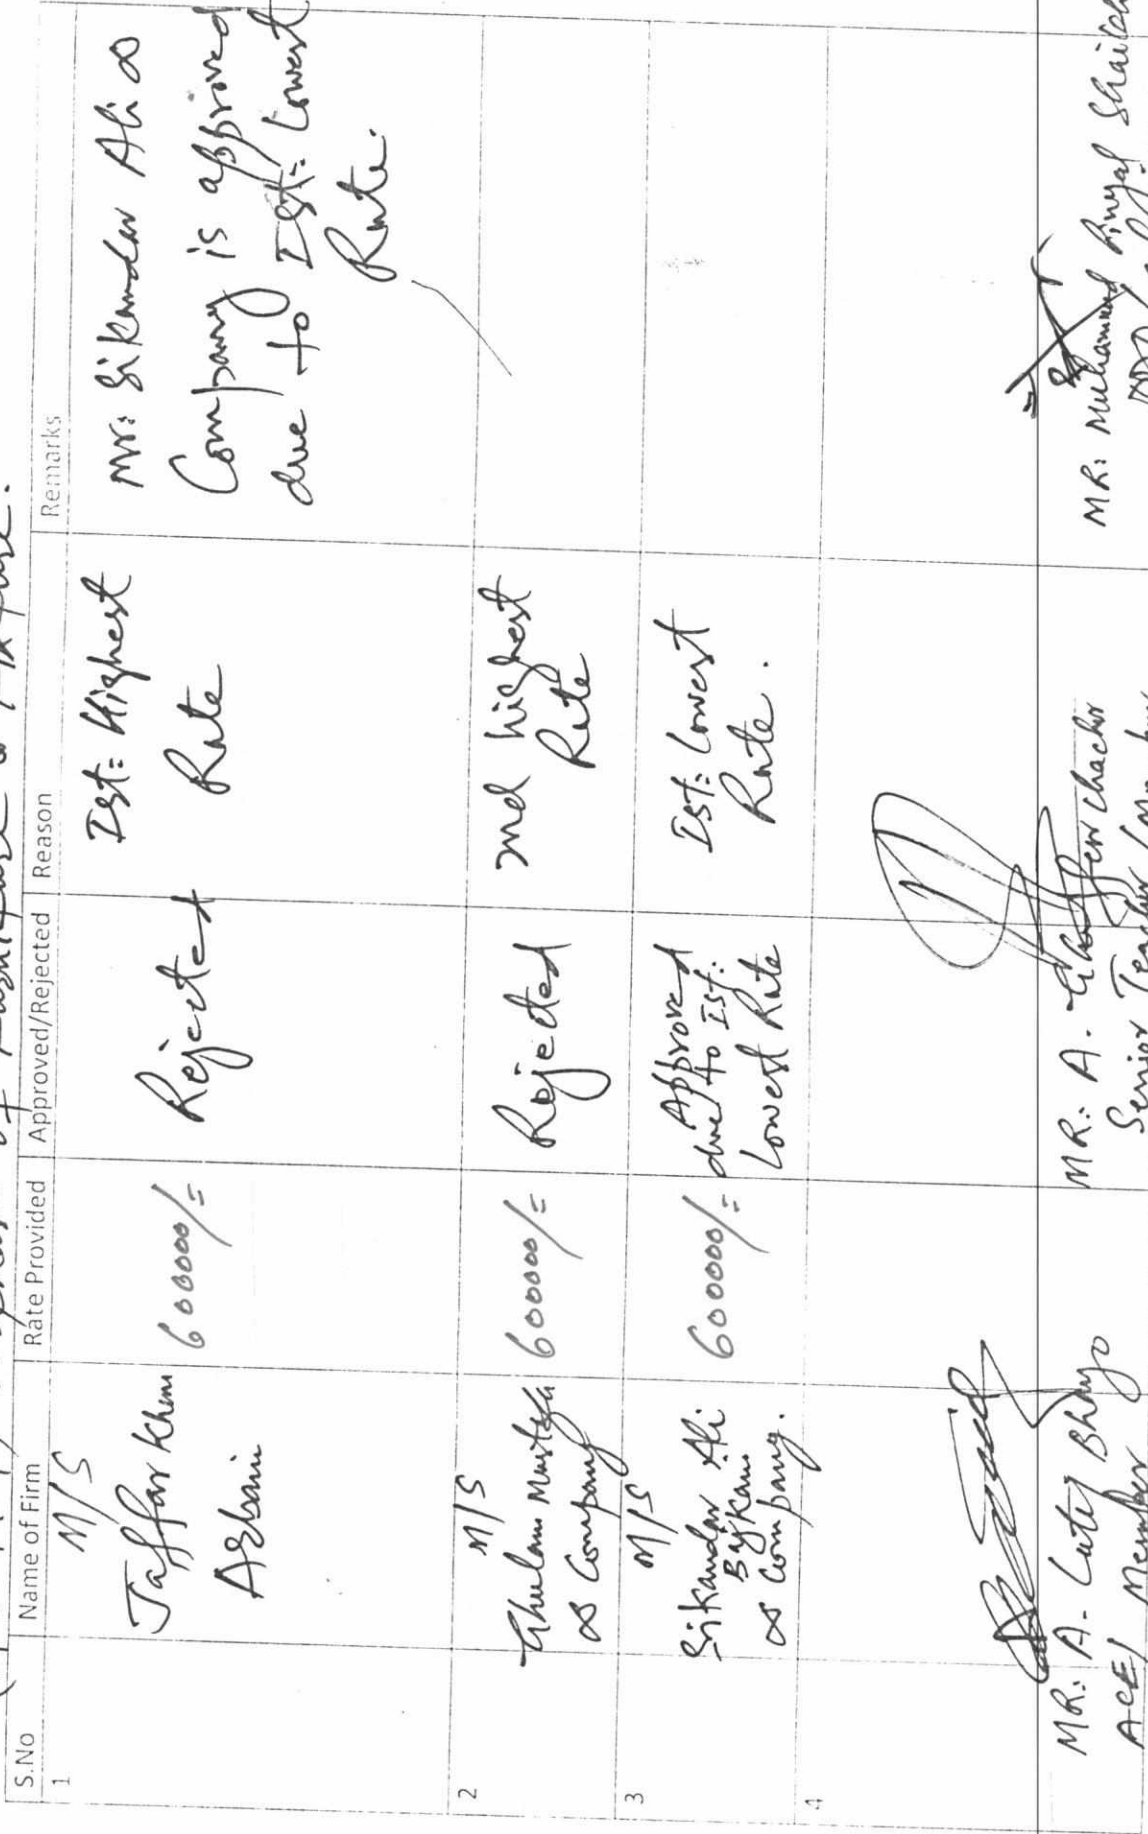 S.No Name of Firm Rate Provided Approved/Rejected Reason Remarks
1 M/S
Jaffar Khan
600000/=
Rejected
Ist= Highest
Rate
Mr: Sikandar Ali &
Company is approved
due to Ist= Lowest
Rate.
2 M/S
Ghulam Mustafa
& Company
600000/=
Rejected
2nd highest
Rate
3 M/S
Sikandar Ali
& Company.
600000/=
Approved
due to Ist:
Lowest Rate
Ist: Lowest
Rate.
4
MR: A. Latif Bhayo
ACE/ Member
MR: A. Ghaffar Chachar
Senior Teacher
MR: Muhammad